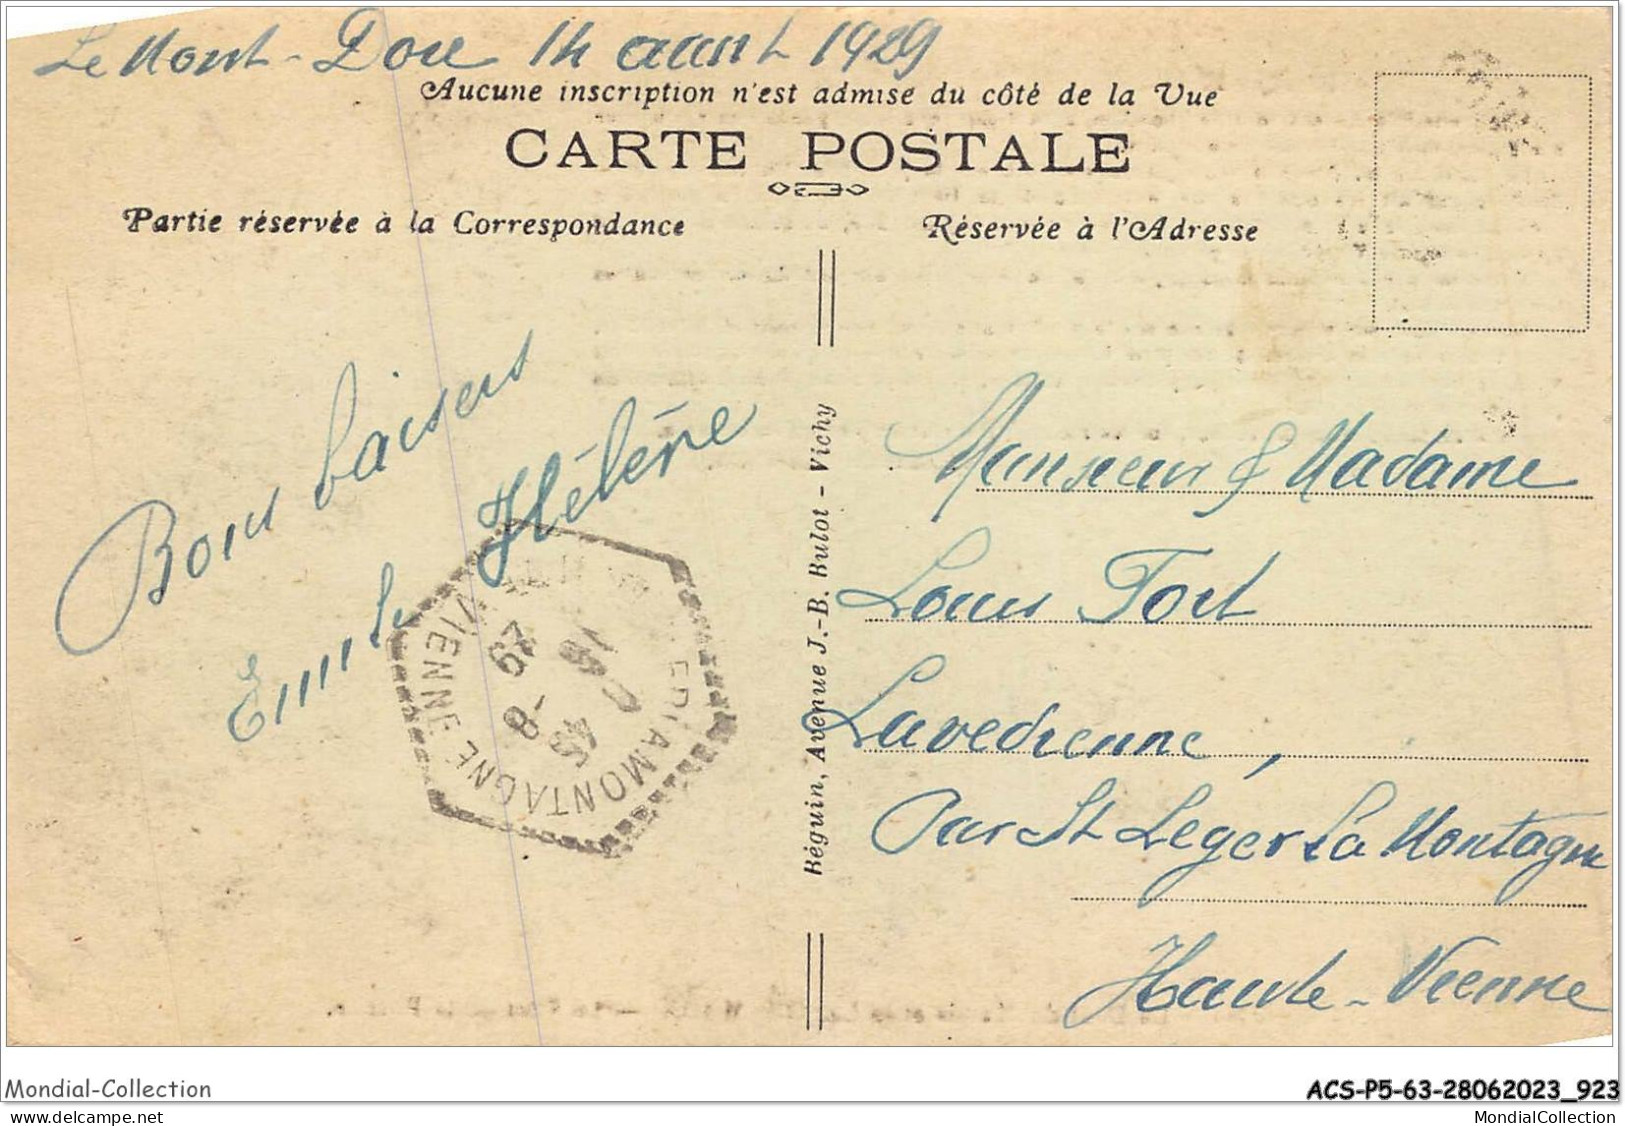 Le Mont-Dore 14 aout 1929
Aucune inscription n'est admise du côté de la Vue
CARTE POSTALE
Partie réservée à la Correspondance
Réservée à l'Adresse
Bons baisers
Emile Hélène
Béguin, Avenue J.-B. Bulot - Vichy
Monsieur & Madame
Louis Fort
Lavedrenne,
Par St Leger La Montagne
Haute-Vienne
LA MONTAGNE
VIENNE
16 -8 29
Mondial-Collection
ACS-P5-63-28062023_923
www.delcampe.net
MondialCollection